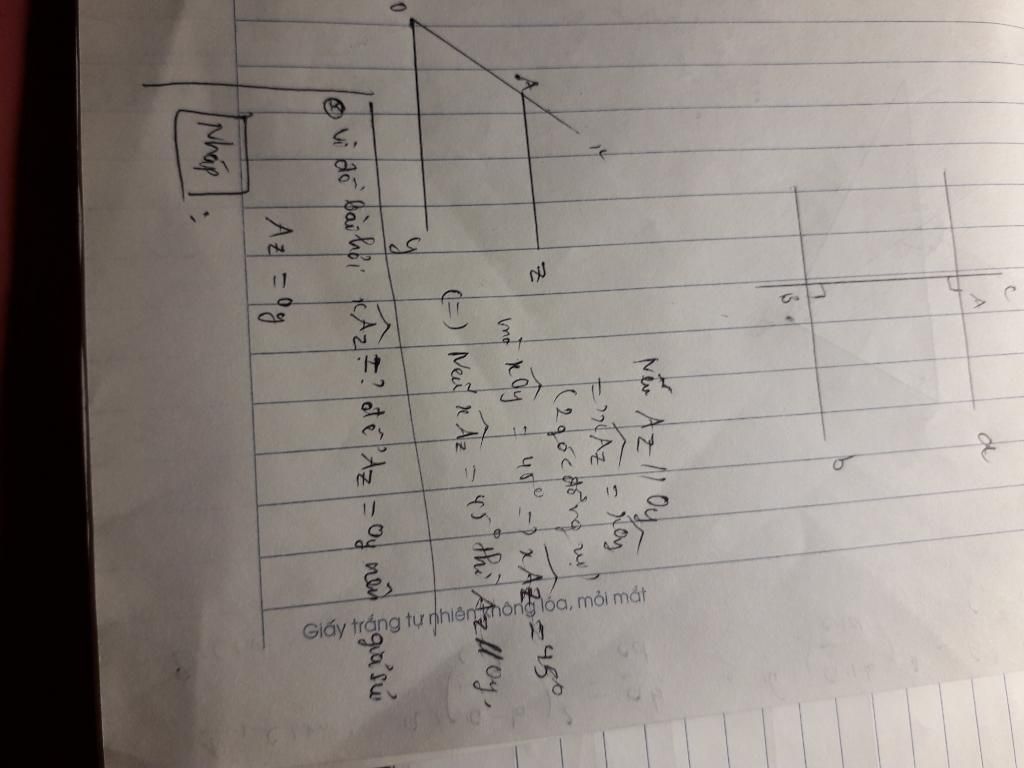 C
A
a
B
b
O
A
x
z
y
Nếu Az // Oy
= xAz = xOy
(2 góc đồng vị)
mà xOy = 45° => xAz = 45°
(=) Nếu xAz = 45° thì Az // Oy,
Giấy trắng tự nhiên không lóa, mỏi mắt
vì đề bài hỏi xAz = ? để Az = Oy nên giả sử
Az = Oy
Nháp :